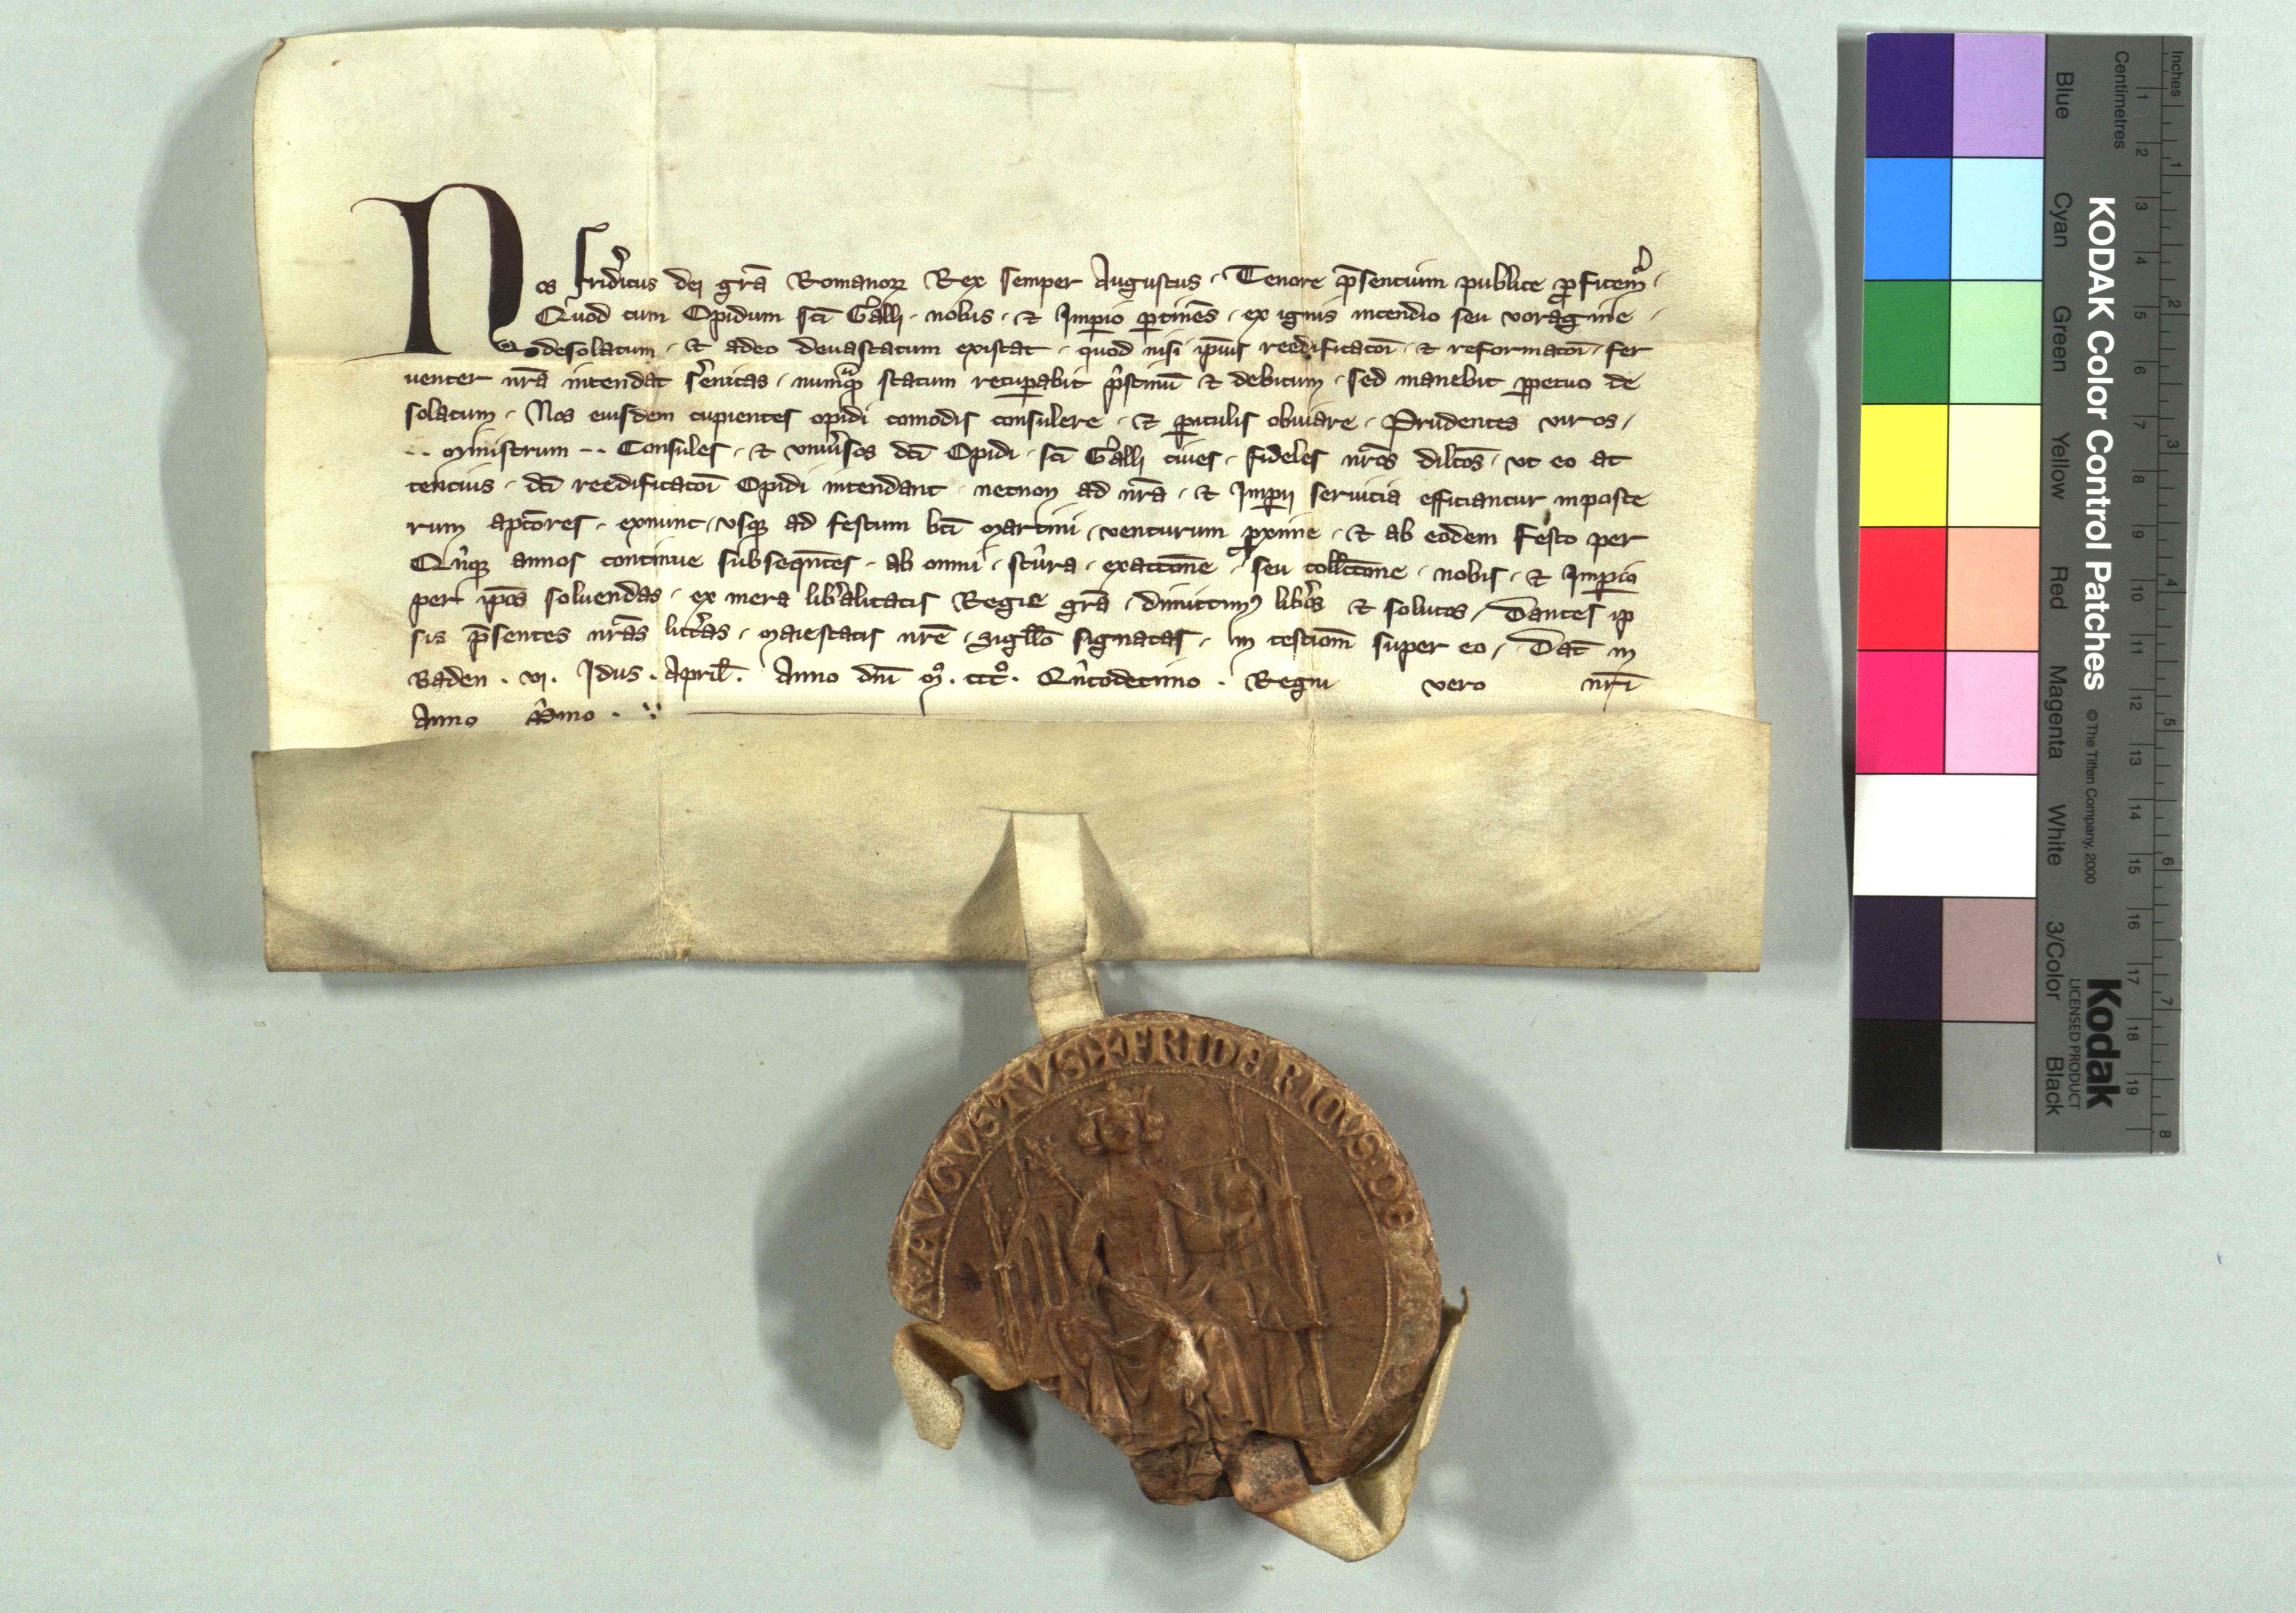 Nos Frid'icus dei gra̅ Romanoꝝ Rex semper Augustus · Tenore p̅sentium publice ꝓfitemᷓ ·
Quod cum Opidum sc̅i Galli · nobis · et Imꝑio ꝑtine̅s · ex ignis incendio seu voragine ·
desolatum · et adeo deuastatum existat · quod nisi ip̅ius reedificatoi̅ · et reformatoi̅ · fer
uenter nr̅a intendat s'enitas · numqᷓ statum recuꝑabit p'stinu̅ et debitum · sed manebit ꝑpetuo de
solatum · Nos eiusdem cupientes opidi comodis consulere · et ꝑiculis obuiare · Prudentes viros ·
·· ministrum ·· Consules · et vniu'sos dc̅i Opidi · sc̅i Galli ciues · fideles nr̅os dilc̅os · vt eo at
tencius · dc̅i reedificatoi̅ Opidi intendant · necnon ad nr̅a · et Imꝑij seruicia efficiantur inposte
rum aptio̅res · exnunc · vsqꝫ ad festum bt̅i Martini · venturum ꝓxime · et ab eodem Festo per
Qu'nqꝫ annos continue subseque̅tes · ab omni · stu'ra · exaccio̅ne · seu coll̅cio̅ne · nobis · et Imꝑio
per ip̅os soluendas · ex mera lib'alitatis Regie gra̅ · dimittimꝰ lib'os et solutos · Dantes ip
sis p̅sentes nr̅as litt'as · Maiestatis nr̅e · sigillo̅ signatas · In testiom̅ super eo · Dat̅ in
Baden · vj · Idus · April̅ · Anno dn̅i Mͦ · cccͦ · Qu'ntodecimo · Regni vero nr̅i
Anno P'mo ·
AVGVSTVS ✠ FRIDERICVS · DEI
KODAK Color Control Patches
© The Tiffen Company, 2000
Kodak
LICENSED PRODUCT
Inches
1 2 3 4 5 6 7 8
Centimetres
1 2 3 4 5 6 7 8 9 10 11 12 13 14 15 16 17 18 19
Blue Cyan Green Yellow Red Magenta White 3/Color Black